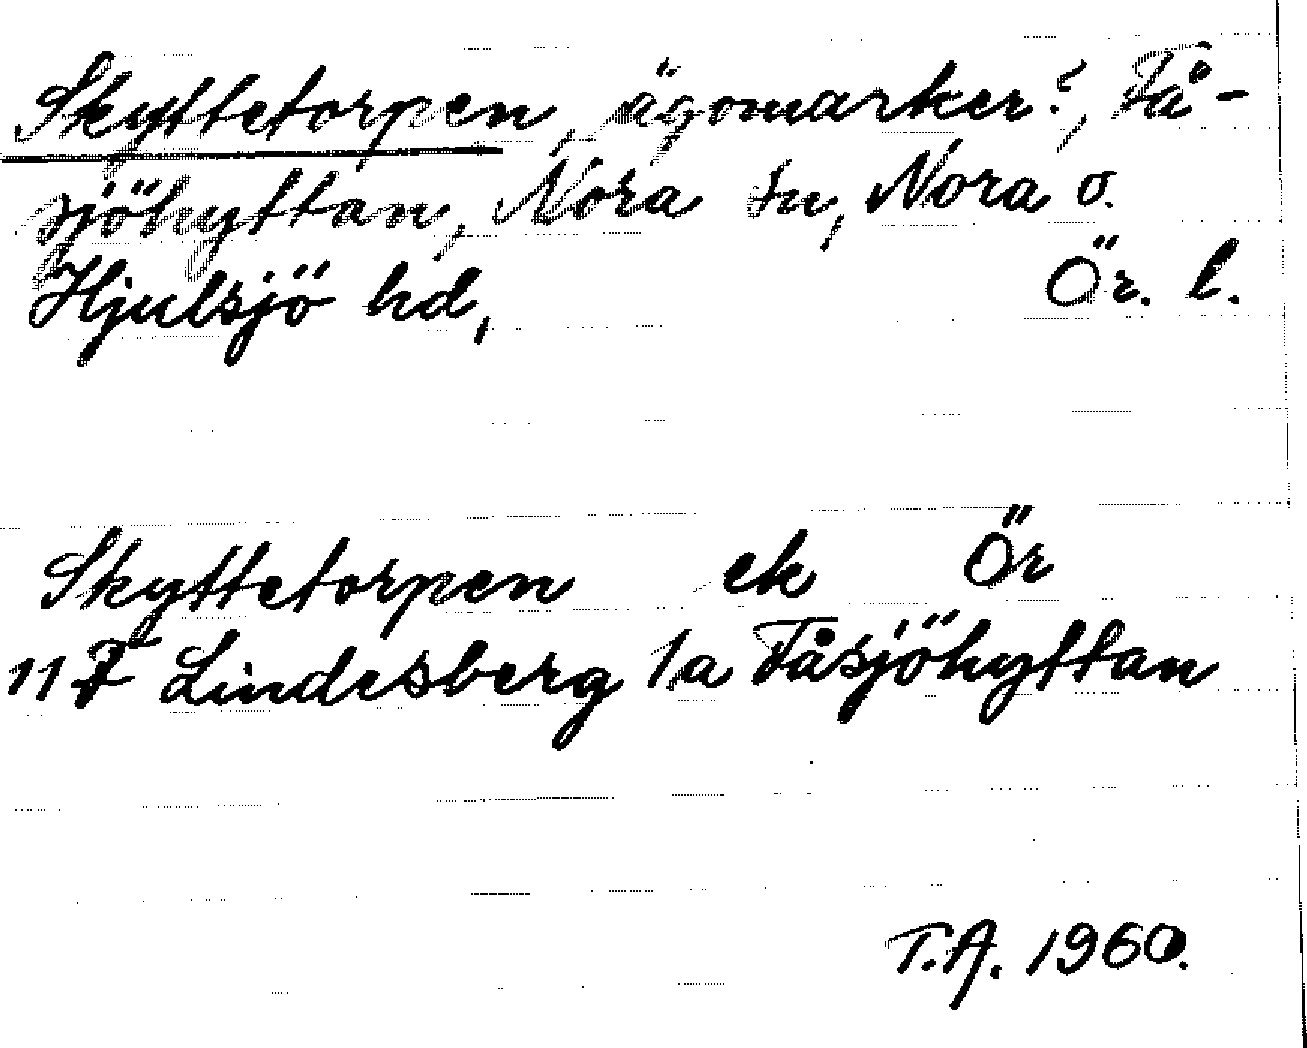 Skyttetorpen, ägomarker?, Få-
sjöhyttan, Nora sn, Nora o.
Hjulsjö hd, Ör. l.
Skyttetorpen ek Ör
11 F Lindesberg 1a Fåsjöhyttan
T.A. 1960.